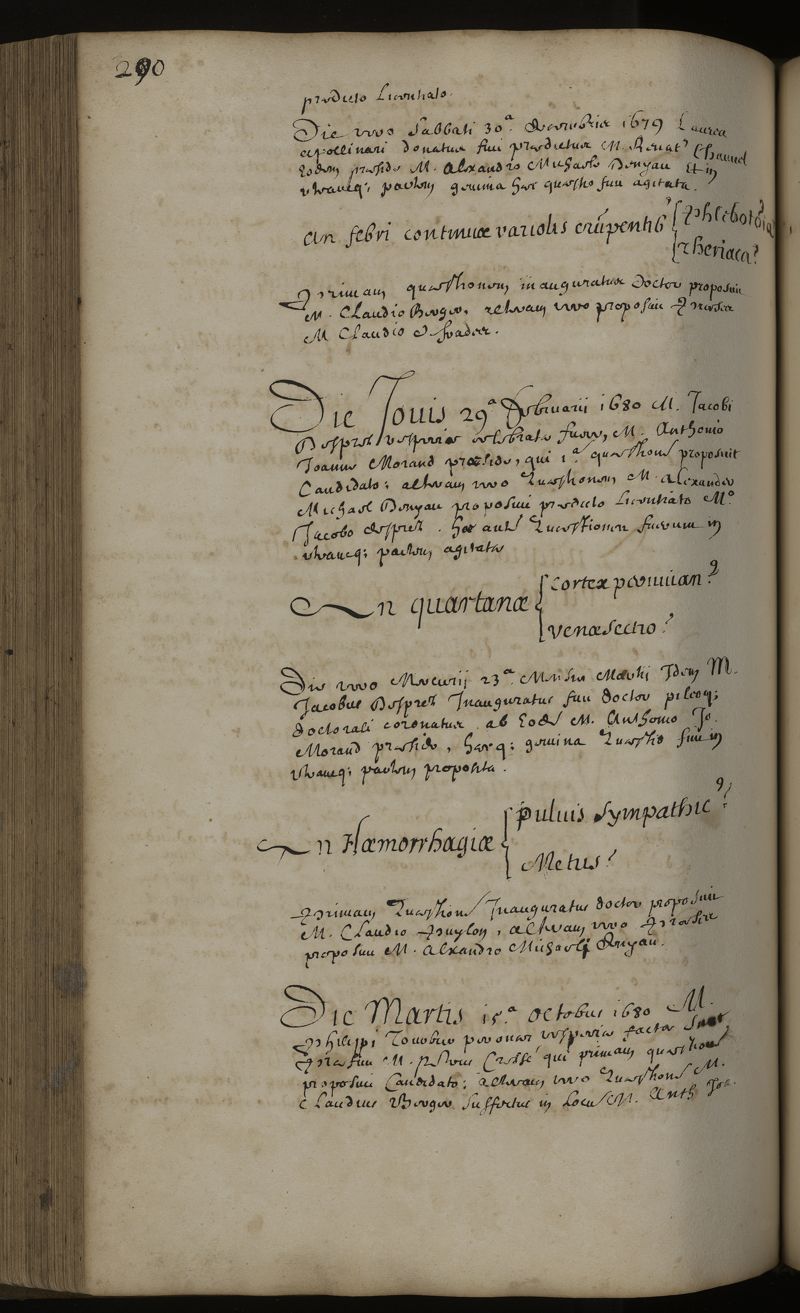 290
predicto Licentiato.
Die vero Sabbati 30ª Decembris 1679 Laurea
apollinari donatus fuit praedictus M. Renatus Charuel
Eodem praeside M. Alexandro Michaele Denyau Et in
utramq; partem gemina haec quaestio fuit agitata.
An febri continuae variolis erumpentib9 { Phlebotomia
Theriaca?
Primam quaestionem inauguratus Doctor proposuit
M. Claudio Berger, alteram vero proposuit Praeses
M Claudio
Die Jouis 29ª februarii 1680 M. Jacobi
Desprez vesperiae celebratae fuere, M. Anthonio
Joanne Morand praeside, qui 1ª quaestionē proposuit
Candidato; alteram vero Quaestionem M. Alexander
Michael Denyau proposuit praedicto licentiato M°
Jacobo desprez. hae autē Quaestiones fuerunt in
utramq; partem agitatae
An quartanae { Cortex peruuian9?
venaesectio?
Die vero Mercurii 23ª Mensis Idem M.
Jacobus Desprez Inauguratus fuit doctor pileoq;
doctorali coronatus ab Eodē M. Anthonio Jo.
Morand praeside, haecq; gemina Quaestio fuit in
utramq; partem proposita.
An Haemorrhagiae { puluis Sympathic9?
Metus?
Primam Quaestionē Inauguratus doctor proposuit
M. Claudio Puylon, alteram vero Praeses
proposuit M. Alexandro Michaele Denyau.
Die Martis 15ª octobris 1680 M.
Philippi vesperiae factae sunt
Praes fuit M. Petrus Cressé qui primam quaestionē
proposuit Candidato; alteram vero Quaestionē M.
Claudius Berger suffectus in Locū M. Anth Joa.